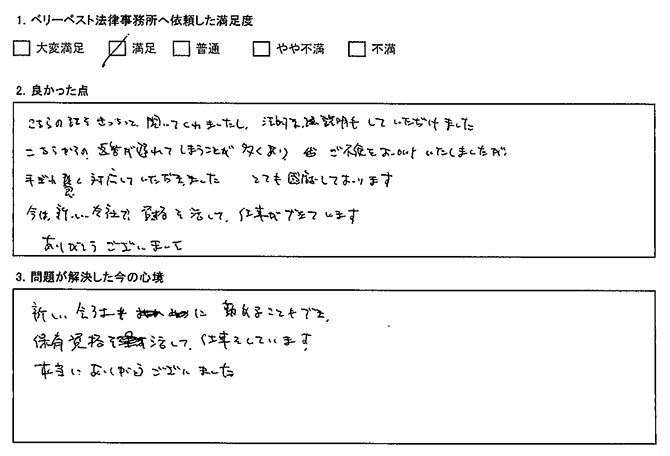 1. ベリーベスト法律事務所へ依頼した満足度
大変満足 満足 普通 やや不満 不満
2. 良かった点
こちらの話をきっちりと聞いてくれましたし、法的な説明もしていただけました
こちらからの返答が遅れてしまうことが多くあり ご不便をおかけいたしましたが、
手際良く対応していただきました とても感謝しております
今は新しい会社で資格を活して、仕事ができています
ありがとうございまして
3. 問題が解決した今の心境
新しい会社に勤めることもでき、
保有資格を活して、仕事をしています。
本当にありがとうございました